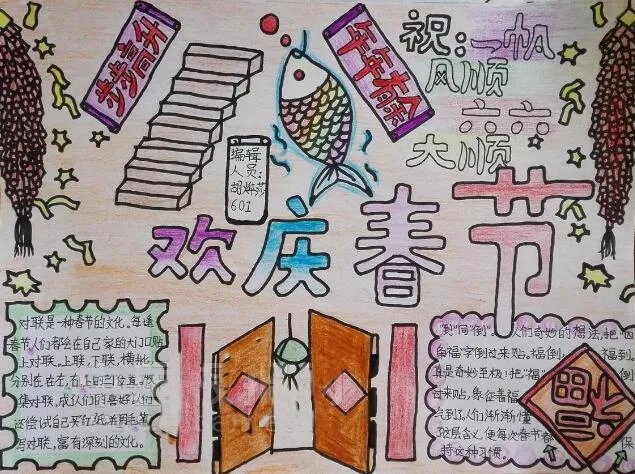 步步高升
年年有余
祝:一帆
风顺
六六
大顺
编辑
人员:
胡烨莎
601
欢庆春节
对联是一种春节的文化。每逢
春节人们都会在自己家的大门口贴
上对联。上联,下联,横批,
分别在左、右、上的
集对联,成人们的喜好人们
还尝试自己买红纸,并用毛笔
写对联,富有深刻的文化。
"到"同"倒"。人们奇妙的想法,把"四
角福字倒过来贴。福倒,福到。
真是奇妙至极!把"福"倒
过来贴,象征着福
气到了,人们渐渐懂
这层含义,便每次春节都
持这种习惯。
保
福